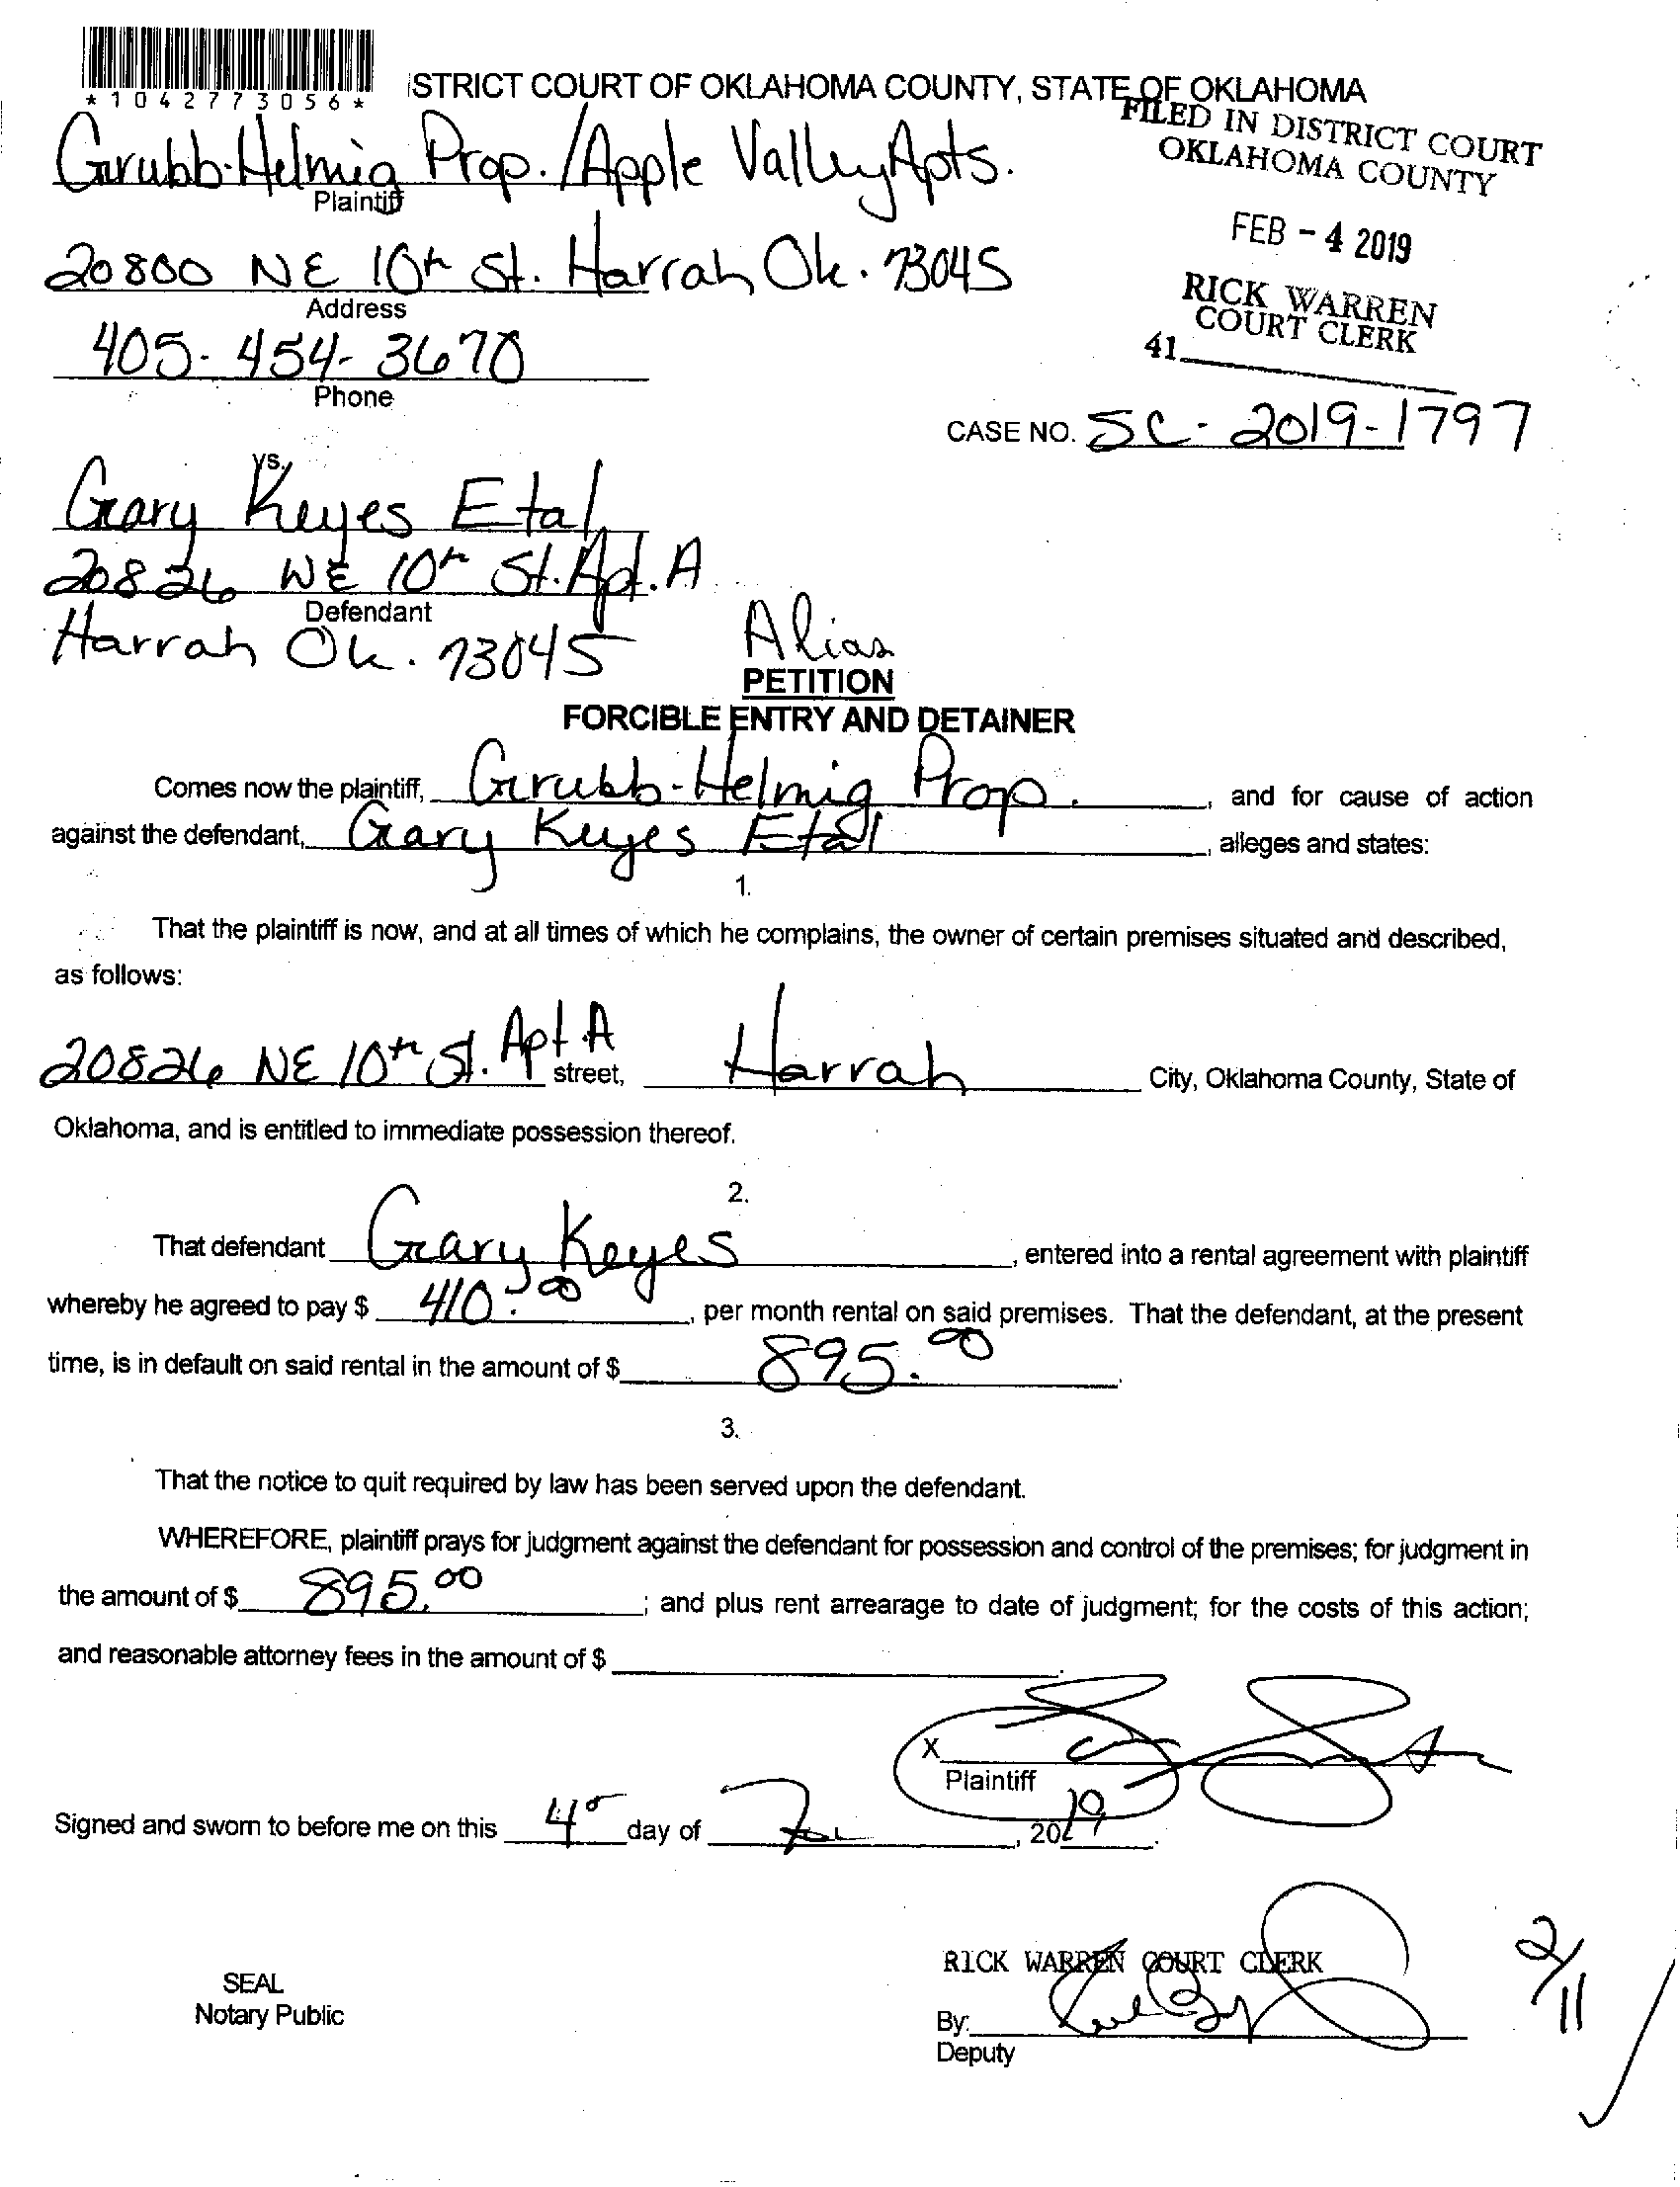 *1042773056*
ISTRICT COURT OF OKLAHOMA COUNTY, STATE OF OKLAHOMA
FILED IN DISTRICT COURT
OKLAHOMA COUNTY
Grubb-Helmig Prop. / Apple Valley Apts.
Plaintiff
FEB - 4 2019
20800 NE 10th St. Harrah Ok. 73045
Address
RICK WARREN
COURT CLERK
41
405-454-3670
Phone
CASE NO. SC-2019-1797
vs.
Gary Keyes Etal
20826 NE 10th St. Apt. A
Defendant
Harrah Ok. 73045
Alias
PETITION
FORCIBLE ENTRY AND DETAINER
Comes now the plaintiff, Grubb-Helmig Prop. , and for cause of action
against the defendant, Gary Keyes Etal , alleges and states:
1.
That the plaintiff is now, and at all times of which he complains, the owner of certain premises situated and described,
as follows:
20826 NE 10th St. Apt. A street, Harrah City, Oklahoma County, State of
Oklahoma, and is entitled to immediate possession thereof.
2.
That defendant Gary Keyes , entered into a rental agreement with plaintiff
whereby he agreed to pay $ 410.00 , per month rental on said premises. That the defendant, at the present
time, is in default on said rental in the amount of $ 895.00 .
3.
That the notice to quit required by law has been served upon the defendant.
WHEREFORE, plaintiff prays for judgment against the defendant for possession and control of the premises; for judgment in
the amount of $ 895.00 ; and plus rent arrearage to date of judgment; for the costs of this action;
and reasonable attorney fees in the amount of $ .
X
Plaintiff
Signed and sworn to before me on this 4 day of , 2019.
RICK WARREN COURT CLERK
2/11
SEAL
Notary Public
By:
Deputy